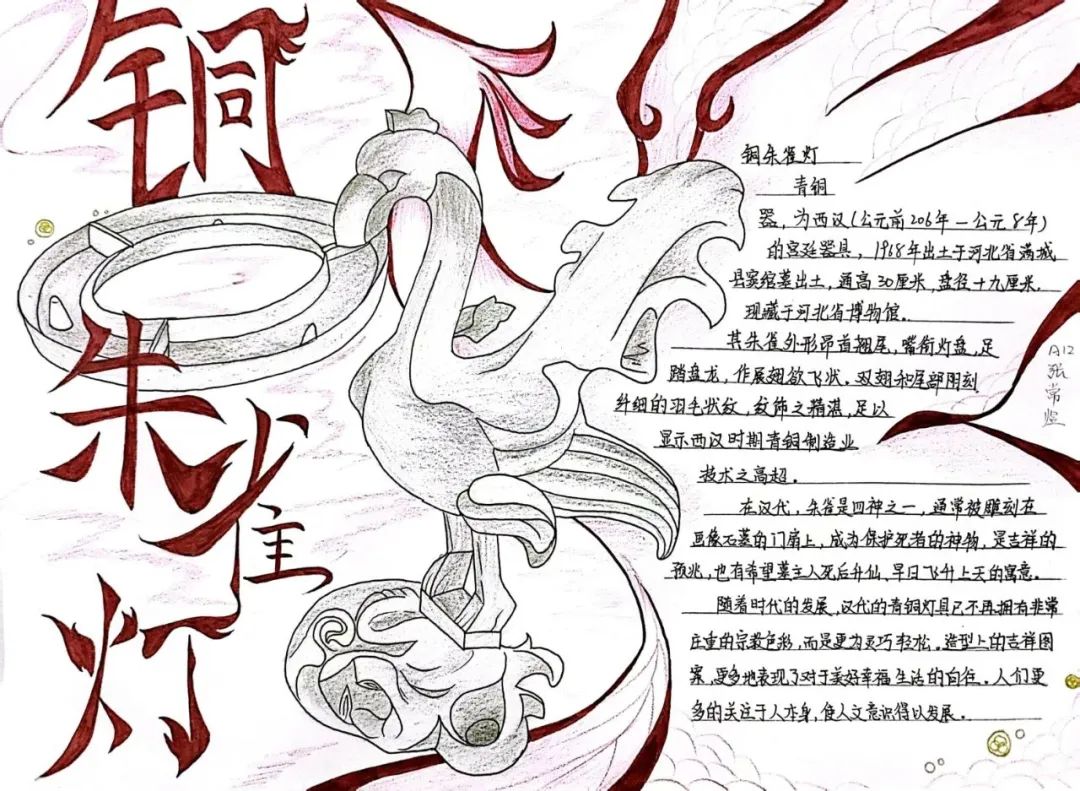 铜朱雀灯
铜朱雀灯
青铜
器，为西汉(公元前206年—公元8年)
的宫廷器具，1968年出土于河北省满城
县窦绾墓出土，通高30厘米，盘径十九厘米.
现藏于河北省博物馆.
其朱雀外形昂首翘尾，嘴衔灯盘，足
踏盘龙，作展翅欲飞状.双翅和尾部阴刻
纤细的羽毛状纹，纹饰之精湛，足以
显示西汉时期青铜制造业
技术之高超.
在汉代，朱雀是四神之一，通常被雕刻在
画像石墓的门扇上，成为保护死者的神物，是吉祥的
预兆，也有希望墓主人死后升仙，早日飞升上天的寓意.
随着时代的发展，汉代的青铜灯具已不再拥有非常
庄重的宗教色彩，而是更为灵巧轻松。造型上的吉祥图
案，更多地表现了对于美好幸福生活的向往.人们更
多的关注于人本身，使人文意识得以发展.
A12
张常煜